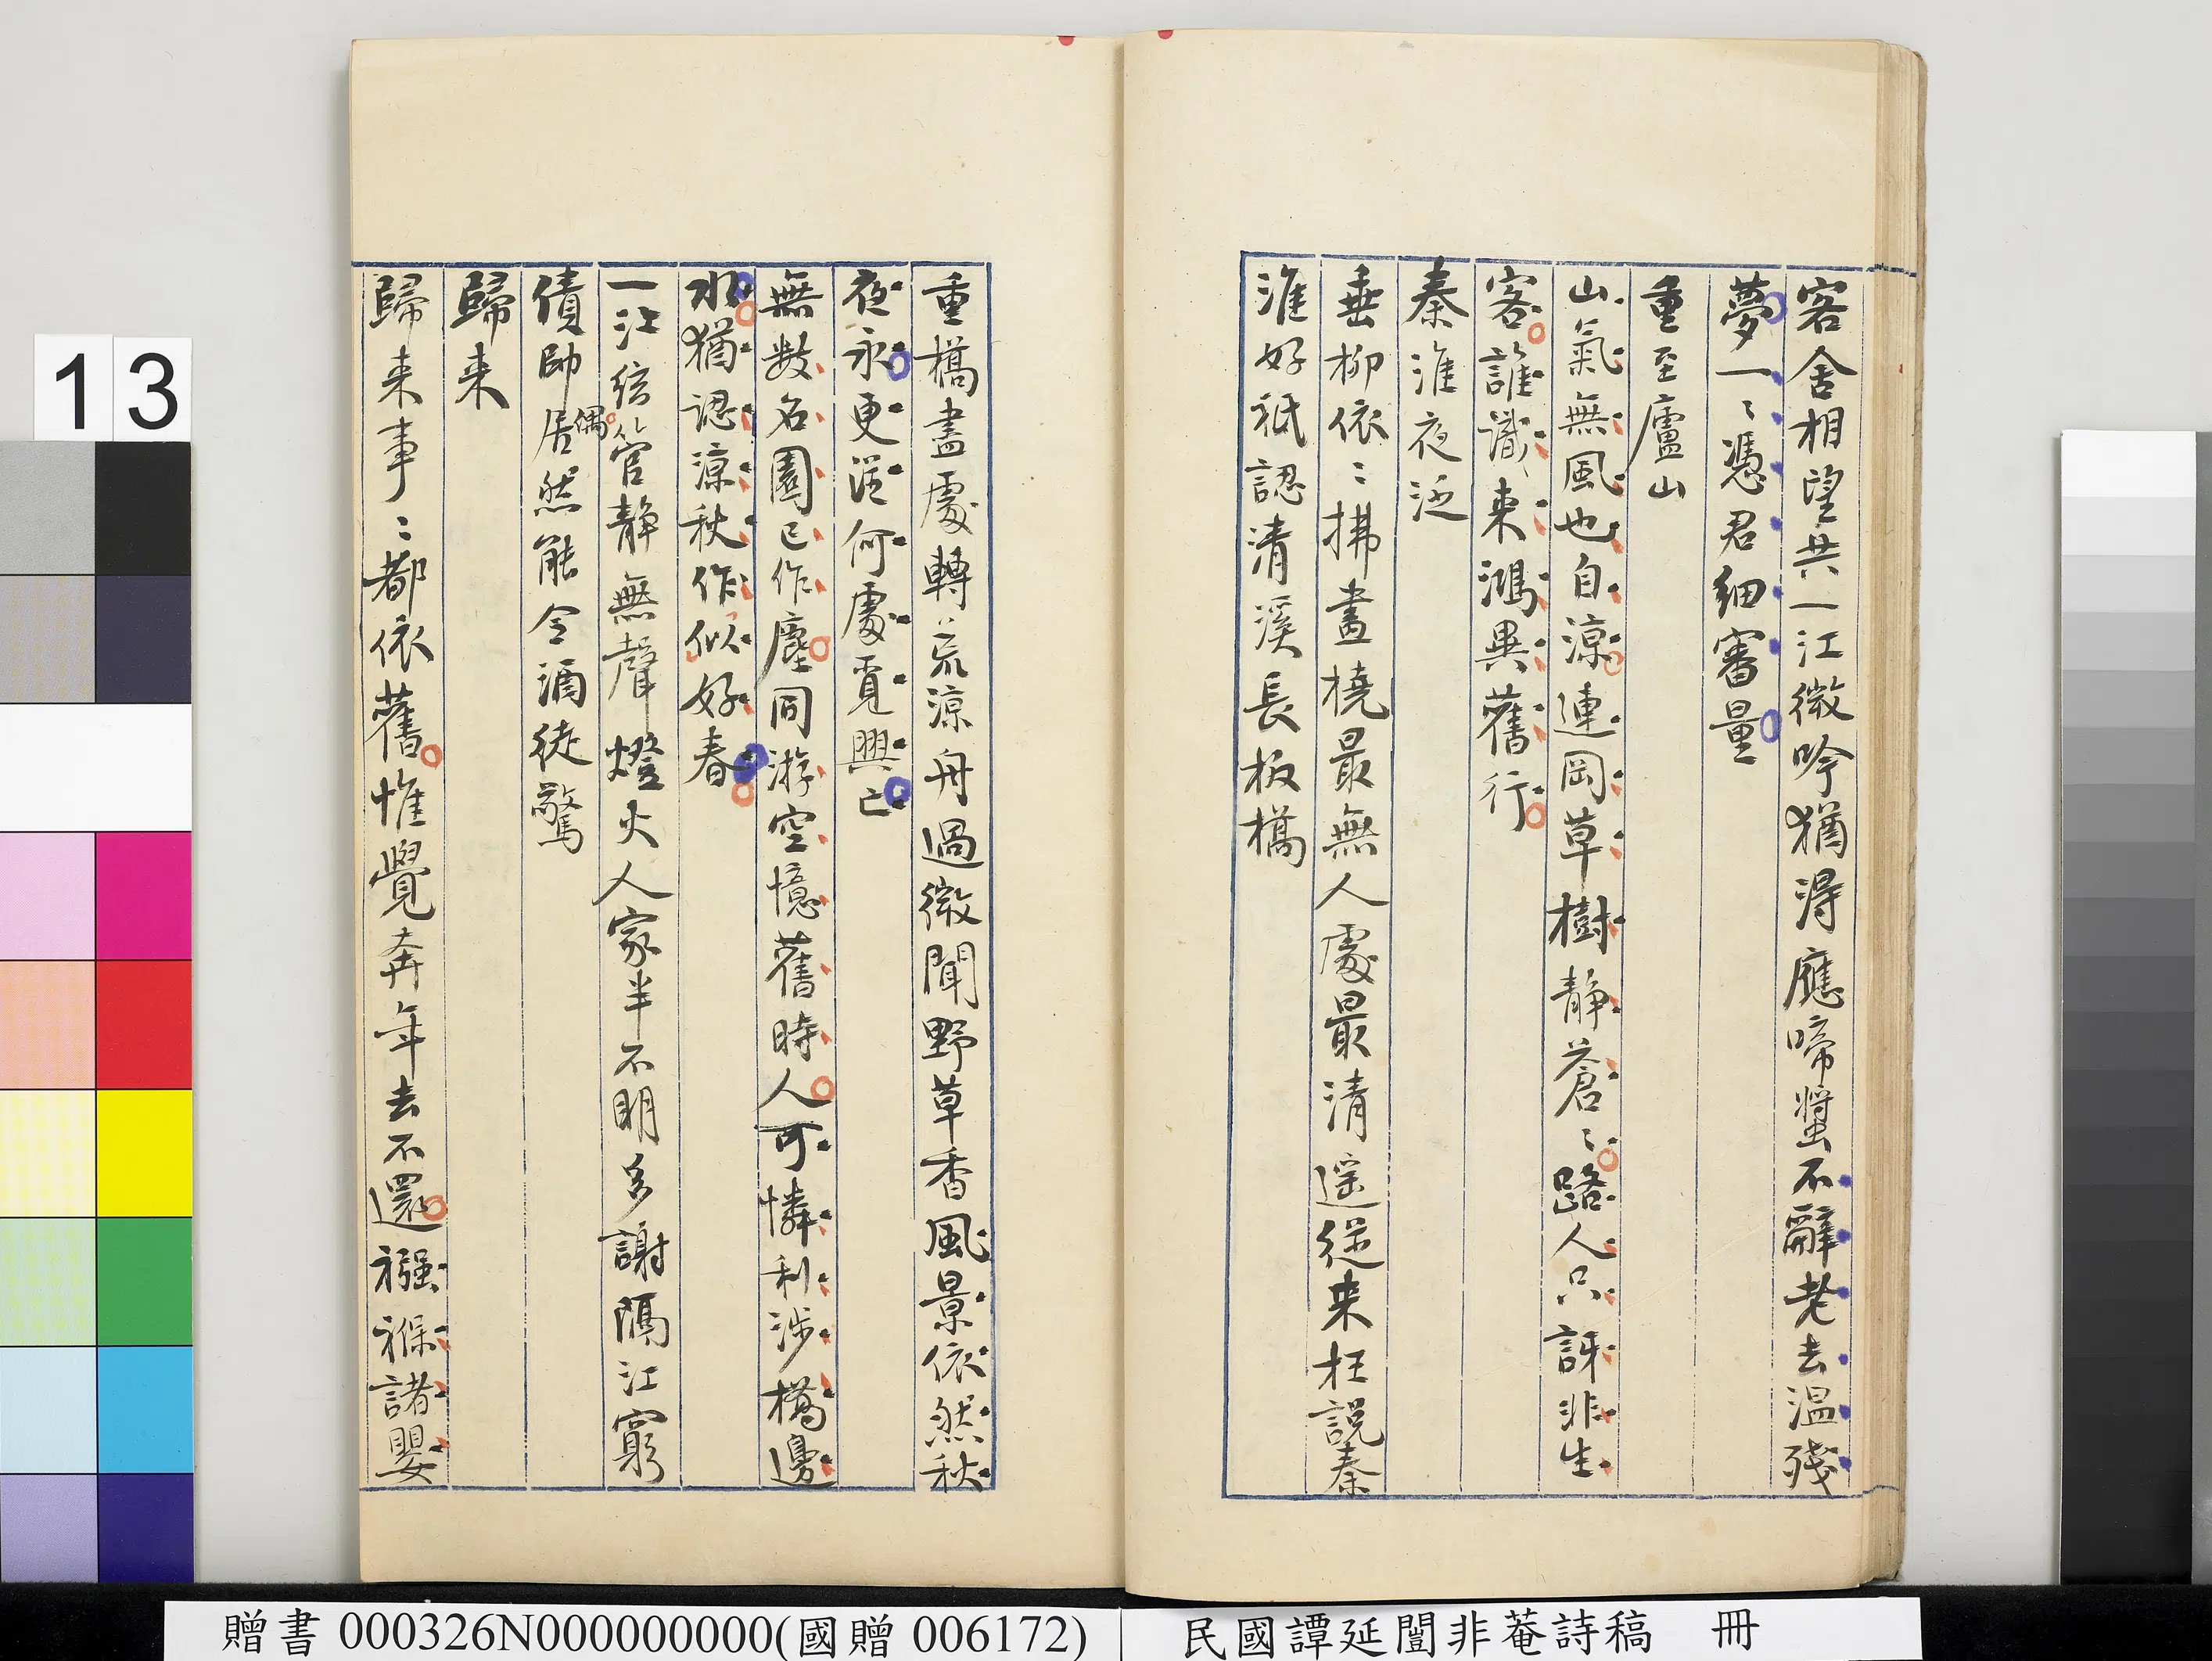 客舍相望共一江微吟猶得應啼螿不辭老去溫殘
夢一〻憑君細審量
重至廬山
山氣無風也自涼連岡草樹靜蒼〻路人只訝非生
客誰識來鴻異舊行
秦淮夜泛
垂柳依〻拂畫橈最無人處最清遥從来枉説秦
淮好祇認清溪長板橋
重橋盡處轉荒涼舟過微聞野草香風景依然秋
夜永更從何處覓興亡
無數名園已作塵同游空憶舊時人可憐利涉橋邊
水猶認涼秋作似好春
一江絃管靜無聲燈火人家半不明多謝隔江窮
債帥居偶然能令酒徒驚
歸来
歸来事〻都依舊惟覺奔年去不還襁褓諸嬰
13
贈書 000326N000000000(國贈 006172)
民國譚延闓非菴詩稿 冊